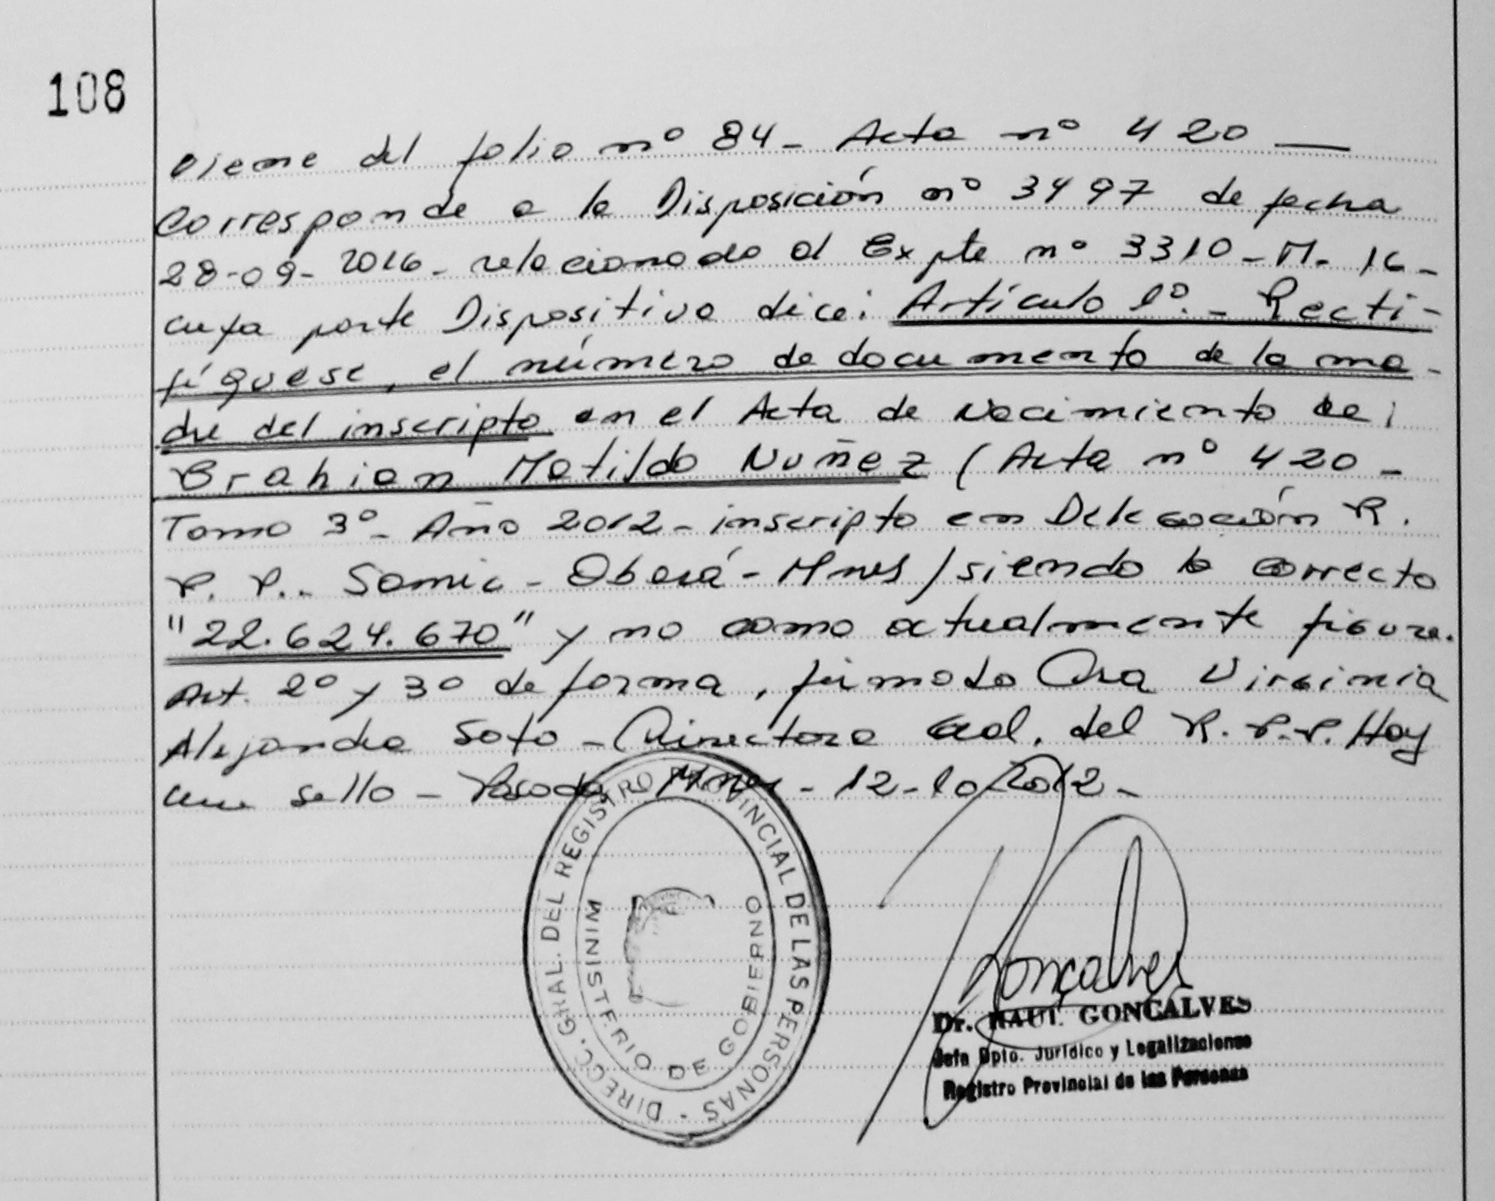 108
Viene del folio nº 84- Acta nº 420 —
Corresponde a la Disposición nº 3497 de fecha
28-09-2016- relacionado al Expte nº 3310-M-16-
cuya parte Dispositiva dice: Artículo 1º.- Recti-
fíquese, el número de documento de la ma-
dre del inscripto en el Acta de Nacimiento de:
Brahian Matildo Nuñez (Acta nº 420-
Tomo 3º- Año 2012- inscripto en Delegación R.
P. P.. Samic - Oberá - Mnes/ siendo lo correcto
"22.624.670" y no como actualmente figura.
Art. 2º y 3º de forma, firmado Dra Virginia
Alejandra Soto - Directora Gral. del R. P.P. Hay
un sello - Posadas, Mnes - 12-10-2012-
DIRECC. GRAL. DEL REGISTRO PROVINCIAL DE LAS PERSONAS -
MINISTERIO DE GOBIERNO
Goncalves
Dr. RAUL GONCALVES
Jefe Dpto. Jurídico y Legalizaciones
Registro Provincial de las Personas